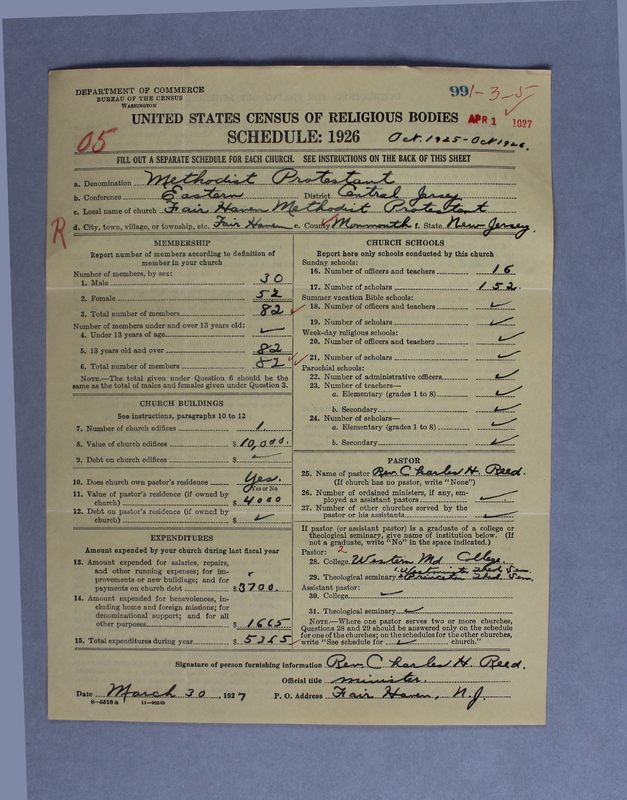 DEPARTMENT OF COMMERCE
BUREAU OF THE CENSUS
WASHINGTON
991-3-5
UNITED STATES CENSUS OF RELIGIOUS BODIES
APR 1 1927
05
SCHEDULE: 1926
Oct. 1925-Oct 1926.
FILL OUT A SEPARATE SCHEDULE FOR EACH CHURCH. SEE INSTRUCTIONS ON THE BACK OF THIS SHEET
a. Denomination Methodist Protestant
b. Conference Eastern District Central Jersey
c. Local name of church Fair Haven Methodist Protestant
R
d. City, town, village, or township, etc. Fair Haven e. County Monmonth f. State New Jersey.
MEMBERSHIP
Report number of members according to definition of
member in your church
Number of members, by sex:
1. Male 30
2. Female 52
3. Total number of members 82
Number of members under and over 13 years old:
4. Under 13 years of age ✓
5. 13 years old and over 82
6. Total number of members 82
NOTE.—The total given under Question 6 should be the
same as the total of males and females given under Question 3.
CHURCH BUILDINGS
See instructions, paragraphs 10 to 12
7. Number of church edifices 1.
8. Value of church edifices $ 10,000.
9. Debt on church edifices $ ✓
10. Does church own pastor's residence Yes.
Yes or No
11. Value of pastor's residence (if owned by
church) $ 4000
12. Debt on pastor's residence (if owned by
church) $ ✓
EXPENDITURES
Amount expended by your church during last fiscal year
13. Amount expended for salaries, repairs,
and other running expenses; for im-
provements or new buildings; and for
payments on church debt $ 3700.
14. Amount expended for benevolences, in-
cluding home and foreign missions; for
denominational support; and for all
other purposes $ 1665
15. Total expenditures during year $ 5365
CHURCH SCHOOLS
Report here only schools conducted by this church
Sunday schools:
16. Number of officers and teachers 16
17. Number of scholars 152.
Summer vacation Bible schools:
18. Number of officers and teachers ✓
19. Number of scholars ✓
Week-day religious schools:
20. Number of officers and teachers ✓
21. Number of scholars ✓
Parochial schools:
22. Number of administrative officers ✓
23. Number of teachers—
a. Elementary (grades 1 to 8) ✓
b. Secondary ✓
24. Number of scholars—
a. Elementary (grades 1 to 8) ✓
b. Secondary ✓
PASTOR
25. Name of pastor Rev. Charles H. Reed.
(If church has no pastor, write "None")
26. Number of ordained ministers, if any, em-
ployed as assistant pastors ✓
27. Number of other churches served by the
pastor or his assistants ✓
If pastor (or assistant pastor) is a graduate of a college or
theological seminary, give name of institution below. (If
not a graduate, write "No" in the space indicated.)
Pastor: 2
28. College Western Md College.
1. Westminster Theo. Sem.
29. Theological seminary Princeton Theo. Sem.
Assistant pastor:
30. College ✓
31. Theological seminary ✓
NOTE.—Where one pastor serves two or more churches,
Questions 28 and 29 should be answered only on the schedule
for one of the churches; on the schedules for the other churches,
write "See schedule for ✓ church."
Signature of person furnishing information Rev. Charles H. Reed.
Official title minister.
Date March 30, 1927 P. O. Address Fair Haven, N.J.